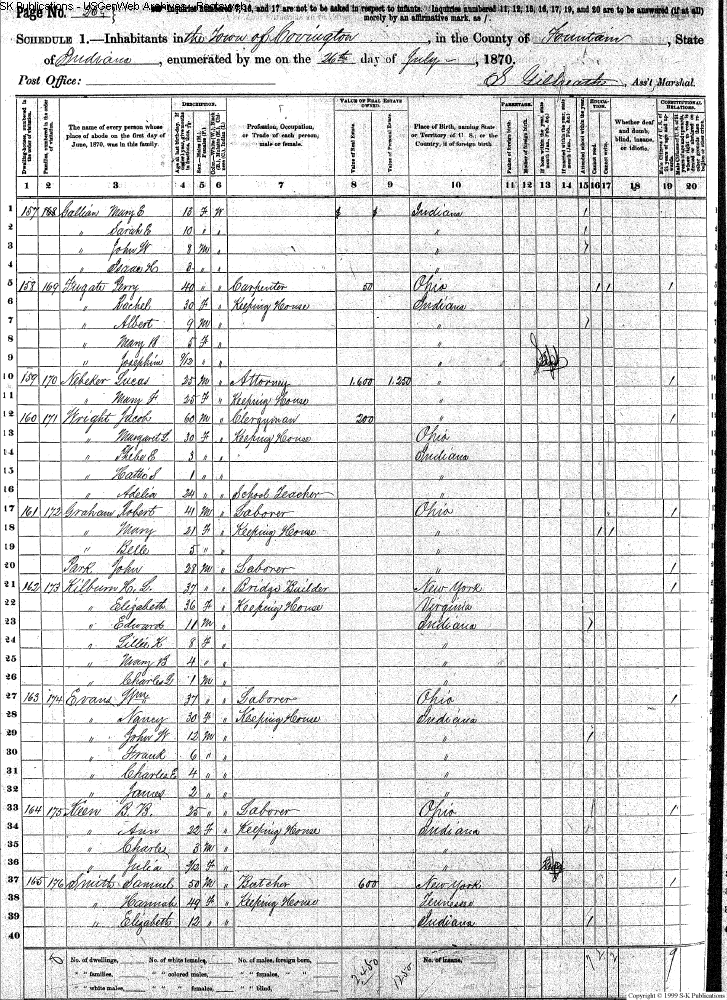 SK Publications - USGenWeb Archives - Restoration
Page No.
and 17 are not to be asked in respect to infants. Inquiries numbered 11, 12, 15, 16, 17, 19, and 20 are to be answered (if at all)
merely by an affirmative mark, as /.
SCHEDULE 1.—Inhabitants in the Town of Covington, in the County of Fountain, State
of Indiana, enumerated by me on the 26th day of July, 1870.
Post Office: S. Gilbreath, Ass't Marshal.
DESCRIPTION. VALUE OF REAL ESTATE OWNED. PARENTAGE. EDUCATION. CONSTITUTIONAL RELATIONS.
The name of every person whose place of abode on the first day of June, 1870, was in this family.
Profession, Occupation, or Trade of each person, male or female.
Value of Real Estate. Value of Personal Estate.
Place of Birth, naming State or Territory of U. S.; or the Country, if of foreign birth.
Father of foreign birth. Mother of foreign birth. Attended school within the year. Cannot read. Cannot write.
Whether deaf and dumb, blind, insane, or idiotic.
1 2 3 4 5 6 7 8 9 10 11 12 13 14 15 16 17 18 19 20
1 157 168 Gallian Mary E 13 F W $ $ Indiana /
2 " Sarah E 10 " " " /
3 " John W 8 M " " /
4 " Isaac H 3 " " "
5 158 169 Perry 40 " " Carpenter 50 Ohio / / /
6 " Rachel 30 F " Keeping House Indiana
7 " Albert 9 M " " /
8 " Mary B 5 F " "
9 " Josephine 9/12 " " "
10 159 170 Nebeker Lucas 25 M " Attorney 1,600 1,250 " /
11 " Mary F 25 F " Keeping House "
12 160 171 Wright Jacob 60 M " Clergyman 200 " /
13 " Margaret L 30 F " Keeping House Ohio
14 " Phebe E 3 " " Indiana
15 " Hattie S 1 " " "
16 " Adelia 24 " " School Teacher "
17 161 172 Graham Robert 41 M " Laborer Ohio /
18 " Mary 21 F " Keeping House " / /
19 " Belle 5 " " "
20 Park John 28 M " Laborer " /
21 162 173 Kilburn H. L. 37 " " Bridge Builder New York /
22 " Elizabeth 36 F " Keeping House Virginia
23 " Edward 11 M " Indiana /
24 " Lillie K 8 F " "
25 " Mary B 4 " " "
26 " Charles G 1 M " "
27 163 174 Evans Wm 37 " " Laborer Ohio /
28 " Nancy 30 F " Keeping House Indiana
29 " John W 12 M " " /
30 " Frank 6 " " "
31 " Charles E 4 " " "
32 " James 2 " " "
33 164 175 Keen B. B. 25 " " Laborer Ohio /
34 " Ann 22 F " Keeping House Indiana
35 " Charles 3 M " "
36 " Julia F " "
37 165 176 Smith Samuel 50 M " Butcher 600 New York /
38 " Hannah 49 F " Keeping House Tennessee
39 " Elizabeth 12 " " Indiana /
40
No. of dwellings, No. of white females, No. of males, foreign born, No. of insane,
" " families, " " colored males, " " females, "
" " white males, " " females, " " blind,
2450 7 2 2 9
Copyright © 1999 S-K Publications